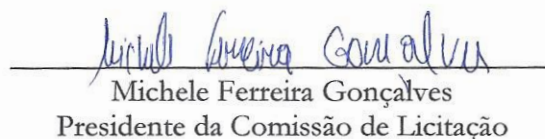 Michele Ferreira Gonçalves
Michele Ferreira Gonçalves
Presidente da Comissão de Licitação